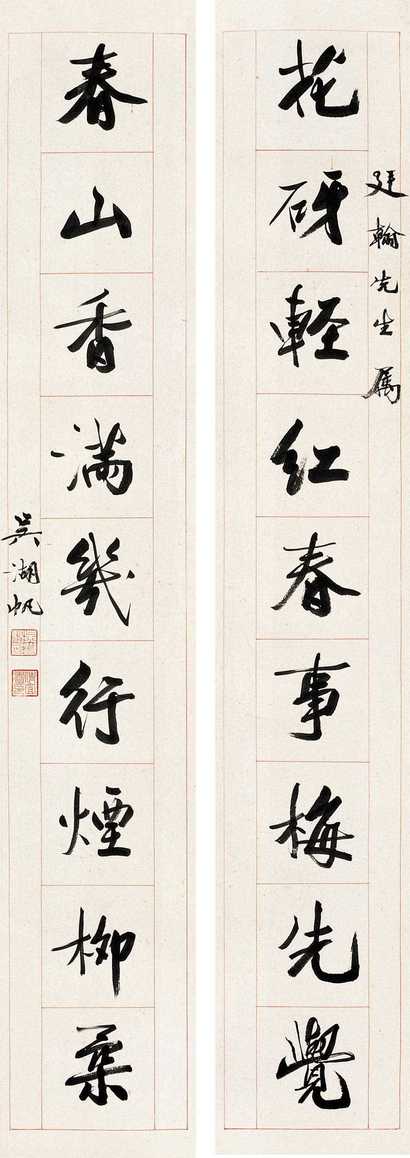 花砑輕紅春事梅先覺
廷翰先生属
春山香滿幾行煙柳葉
吴湖帆